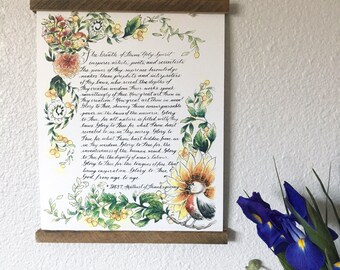 The breath of Thine Holy Spirit
inspires artists, poets and scientists.
The power of Thy supreme knowledge
makes them prophets and interpreters
of Thy laws, who reveal the depths of
Thy creative wisdom. Their works speak
unwittingly of Thee. How great art Thou in
Thy creation! How great art Thou in man!
Glory to Thee, showing
power in the laws of the universe. Glory to
Thee, for all nature is filled with Thy
laws. Glory to Thee for what Thou hast
revealed to us in Thy mercy. Glory to
Thee for what Thou hast hidden from us
in Thy wisdom. Glory to Thee for the
inventiveness of the human mind. Glory
to Thee for the dignity of man's labour.
Glory to Thee for the tongues of fire that
bring inspiration. Glory to Thee, O
God from age to age.
Akathist of Thanksgiving